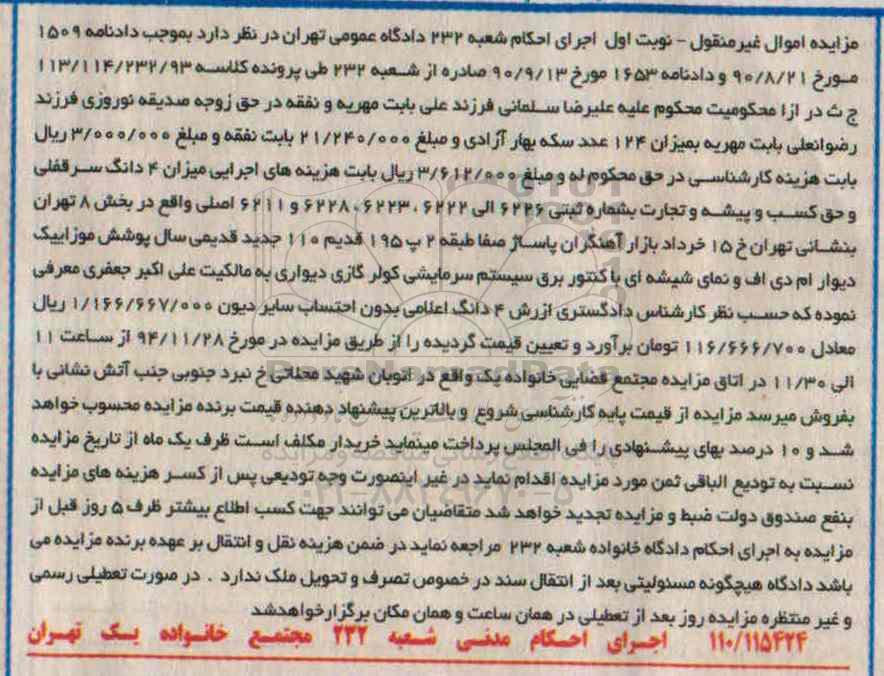 مزایده اموال غیرمنقول - نوبت اول اجرای احکام شعبه ۲۳۲ دادگاه عمومی تهران در نظر دارد بموجب دادنامه ۱۵۰۹
مورخ ۹۰/۸/۲۱ و دادنامه ۱۶۵۳ مورخ ۹۰/۹/۱۳ صادره از شعبه ۲۳۲ طی پرونده کلاسه ۱۱۳/۱۱۴/۲۳۲/۹۳
ج ث در ازا محکومیت محکوم علیه علیرضا سلمانی فرزند علی بابت مهریه و نفقه در حق زوجه صدیقه نوروزی فرزند
رضوانعلی بابت مهریه بمیزان ۱۲۴ عدد سکه بهار آزادی و مبلغ ۲۱/۲۴۰/۰۰۰ بابت نفقه و مبلغ ۳/۰۰۰/۰۰۰ ریال
بابت هزینه کارشناسی در حق محکوم له و مبلغ ۳/۶۱۲/۰۰۰ ریال بابت هزینه های اجرایی میزان ۴ دانگ سرقفلی
و حق کسب و پیشه و تجارت بشماره ثبتی ۶۲۲۶ الی ۶۲۲۲ ، ۶۲۲۳ ، ۶۲۲۸ و ۶۲۱۱ اصلی واقع در بخش ۸ تهران
بنشانی تهران خ ۱۵ خرداد بازار آهنگران پاساژ صفا طبقه ۲ پ ۱۹۵ قدیم ۱۱۰ جدید قدیمی سال پوشش موزاییک
دیوار ام دی اف و نمای شیشه ای با کنتور برق سیستم سرمایشی کولر گازی دیواری به مالکیت علی اکبر جعفری معرفی
نموده که حسب نظر کارشناس دادگستری ازرش ۴ دانگ اعلامی بدون احتساب سایر دیون ۱/۱۶۶/۶۶۷/۰۰۰ ریال
معادل ۱۱۶/۶۶۶/۷۰۰ تومان برآورد و تعیین قیمت گردیده را از طریق مزایده در مورخ ۹۴/۱۱/۲۸ از ساعت ۱۱
الی ۱۱/۳۰ در اتاق مزایده مجتمع قضایی خانواده یک واقع در اتوبان شهید محلاتی خ نبرد جنوبی جنب آتش نشانی با
بفروش میرسد مزایده از قیمت پایه کارشناسی شروع و بالاترین پیشنهاد دهنده قیمت برنده مزایده محسوب خواهد
شد و ۱۰ درصد بهای پیشنهادی را فی المجلس پرداخت مینماید خریدار مکلف است ظرف یک ماه از تاریخ مزایده
نسبت به تودیع الباقی ثمن مورد مزایده اقدام نماید در غیر اینصورت وجه تودیعی پس از کسر هزینه های مزایده
بنفع صندوق دولت ضبط و مزایده تجدید خواهد شد متقاضیان می توانند جهت کسب اطلاع بیشتر ظرف ۵ روز قبل از
مزایده به اجرای احکام دادگاه خانواده شعبه ۲۳۲ مراجعه نماید در ضمن هزینه نقل و انتقال بر عهده برنده مزایده می
باشد دادگاه هیچگونه مسئولیتی بعد از انتقال سند در خصوص تصرف و تحویل ملک ندارد . در صورت تعطیلی رسمی
و غیر منتظره مزایده روز بعد از تعطیلی در همان ساعت و همان مکان برگزارخواهدشد
۱۱۰/۱۱۵۴۲۴ اجرای احکام مدنی شعبه ۲۳۲ مجتمع خانواده یک تهران